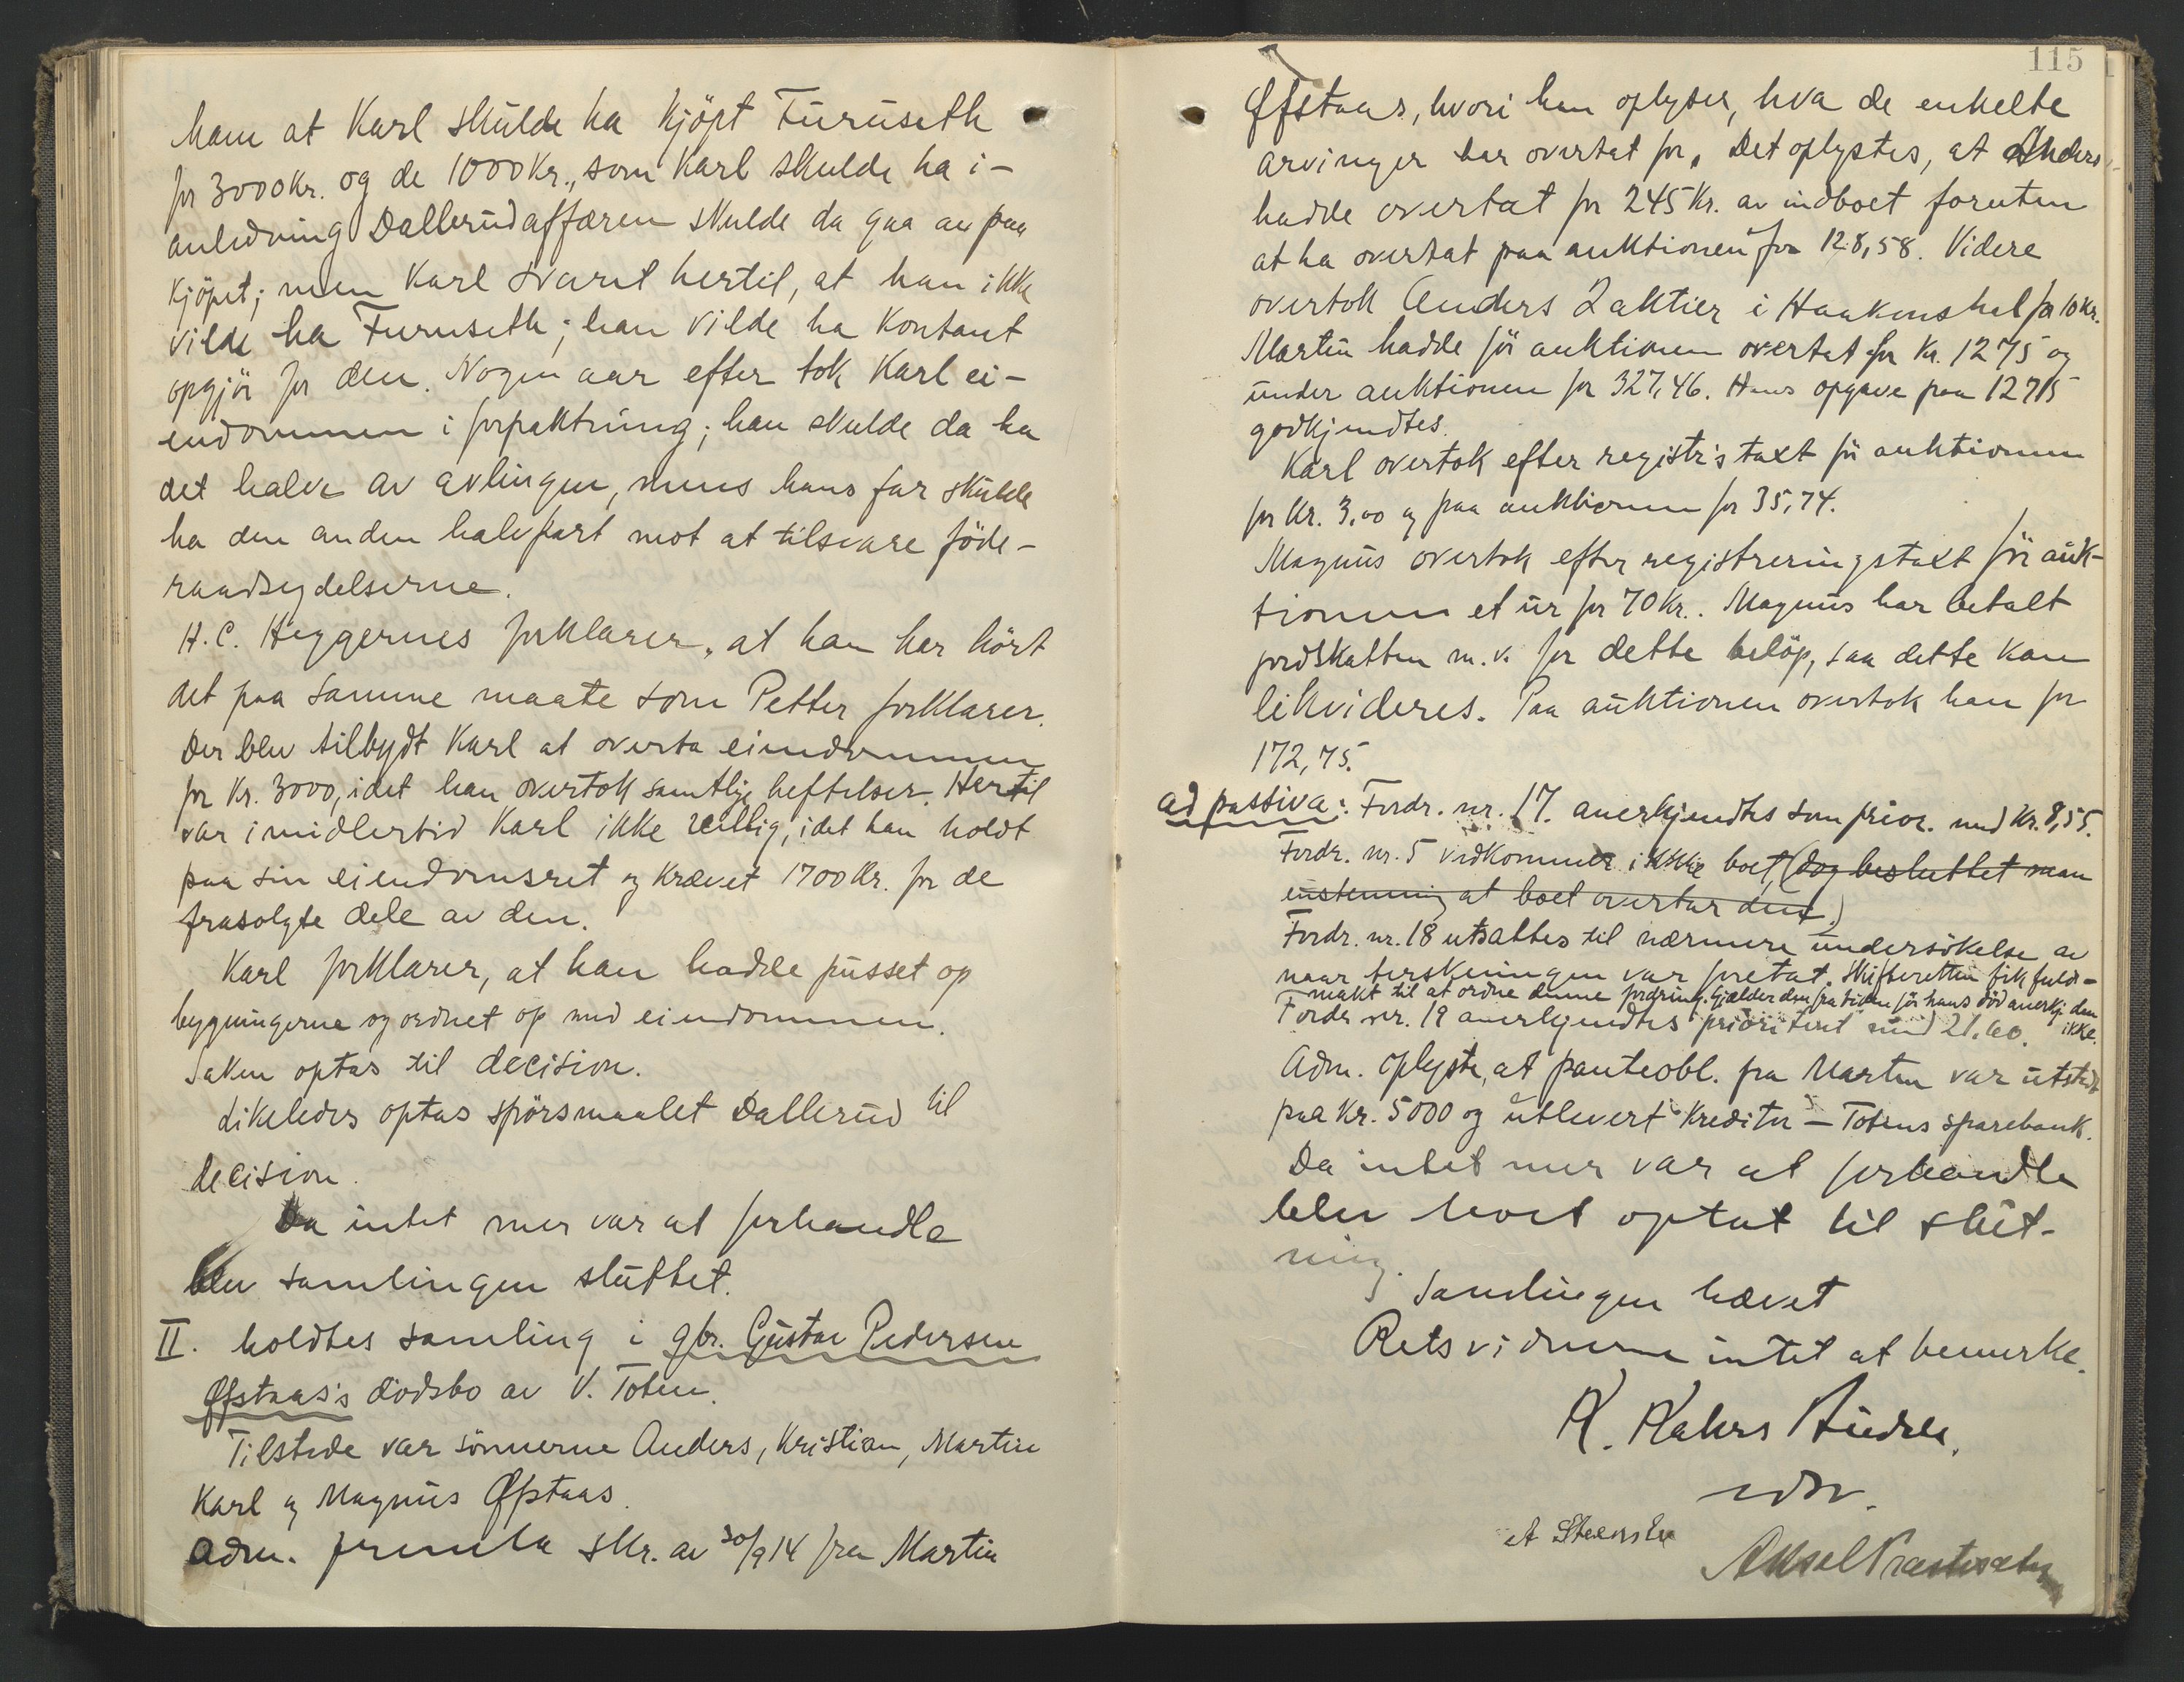 ham at Karl skulde ha kjöpt Furuseth
for 3000 kr. og de 1000 kr., som Karl skulde ha i-
anledning Dallerudaffæren skulde da gaa av paa
kjöpet; men Karl svaret hertil, at han ikke
vilde ha Furuseth; han vilde ha kontant
opgjör for den. Nogen aar efter tok Karl ei-
endommen i forpaktning; han skulde da ha
det halve av avlingen, mens hans far skulde
ha den anden halvpart mot at tilsvare föde-
raadsydelserne.
H. C. Heggernes forklarer, at han har hört
det paa samme maate som Petter forklarer.
Der blev tilbydt Karl at overta eiendommen
for kr. 3000, idet han overtok samtlige heftelser. Hertil
var imidlertid Karl ikke villig, idet han holdt
paa sin eiendomsret og krævet 1700 kr. for de
frasolgte dele av den.
Karl forklarer, at han hadde pusset op
bygningerne og ordnet op med eiendommen.
Saken optas til decision.
Likeledes optas spörsmaalet Dallerud til
decision.
Da intet mer var at forhandle
blev samlingen sluttet.
II. holdtes samling i gbr. Gustav Pedersen
Øfstaas's dödsbo av V. Toten.
Tilstede var sönnerne Anders, Kristian, Martin
Karl og Magnus Øfstaas.
Adm. fremla skr. av 30/9 14 fra Martin
115
Øfstaas, hvori han oplyser, hva de enkelte
arvinger har overtat for. Det oplystes, at Anders
hadde overtat for 245 kr. av indboet foruten
at ha overtat paa auktionen for 128,58. Videre
overtok Anders 2 aktier i Haakonshal for 10 kr.
Martin hadde för auktionen overtat for kr. 1275 og
under auktionen for 327,46. Hans opgave paa 1275
godkjendtes.
Karl overtok efter registr's taxt för auktionen
for kr. 3,00 og paa auktionen for 35,74.
Magnus overtok efter registreringstaxt för auk-
tionen et ur for 70 kr.. Magnus har betalt
jordskatten m. v. for dette belöp, saa dette kan
likvideres. Paa auktionen overtok han for
172,75.
ad passiva: Fordr. nr. 17. anerkjendtes som prior. med kr. 8,55.
Fordr. nr. 5 vedkommer ikke boet, (dog besluttet man
enstemmig at boet overtar den.)
Fordr. nr. 18 utsattes til nærmere undersökelse av
naar terskningen var foretat. Skifteretten fik fuld-
makt til at ordne denne fordring. Gjælder den fra tiden för hans död anerkj. den
ikke.
Fordr. nr. 19 anerkjendtes prioritert med 21,60.
Adm. oplyste, at panteobl. fra Martin var utstedt
paa kr. 5000 og utlevert kreditor – Totens sparebank.
Da intet mer var at forhandle
blev boet optat til slut-
ning.
Samlingen hævet
Retsvidnerne intet at bemerke.
K. Kahrs
A Steensle
Aksel Præstesæter